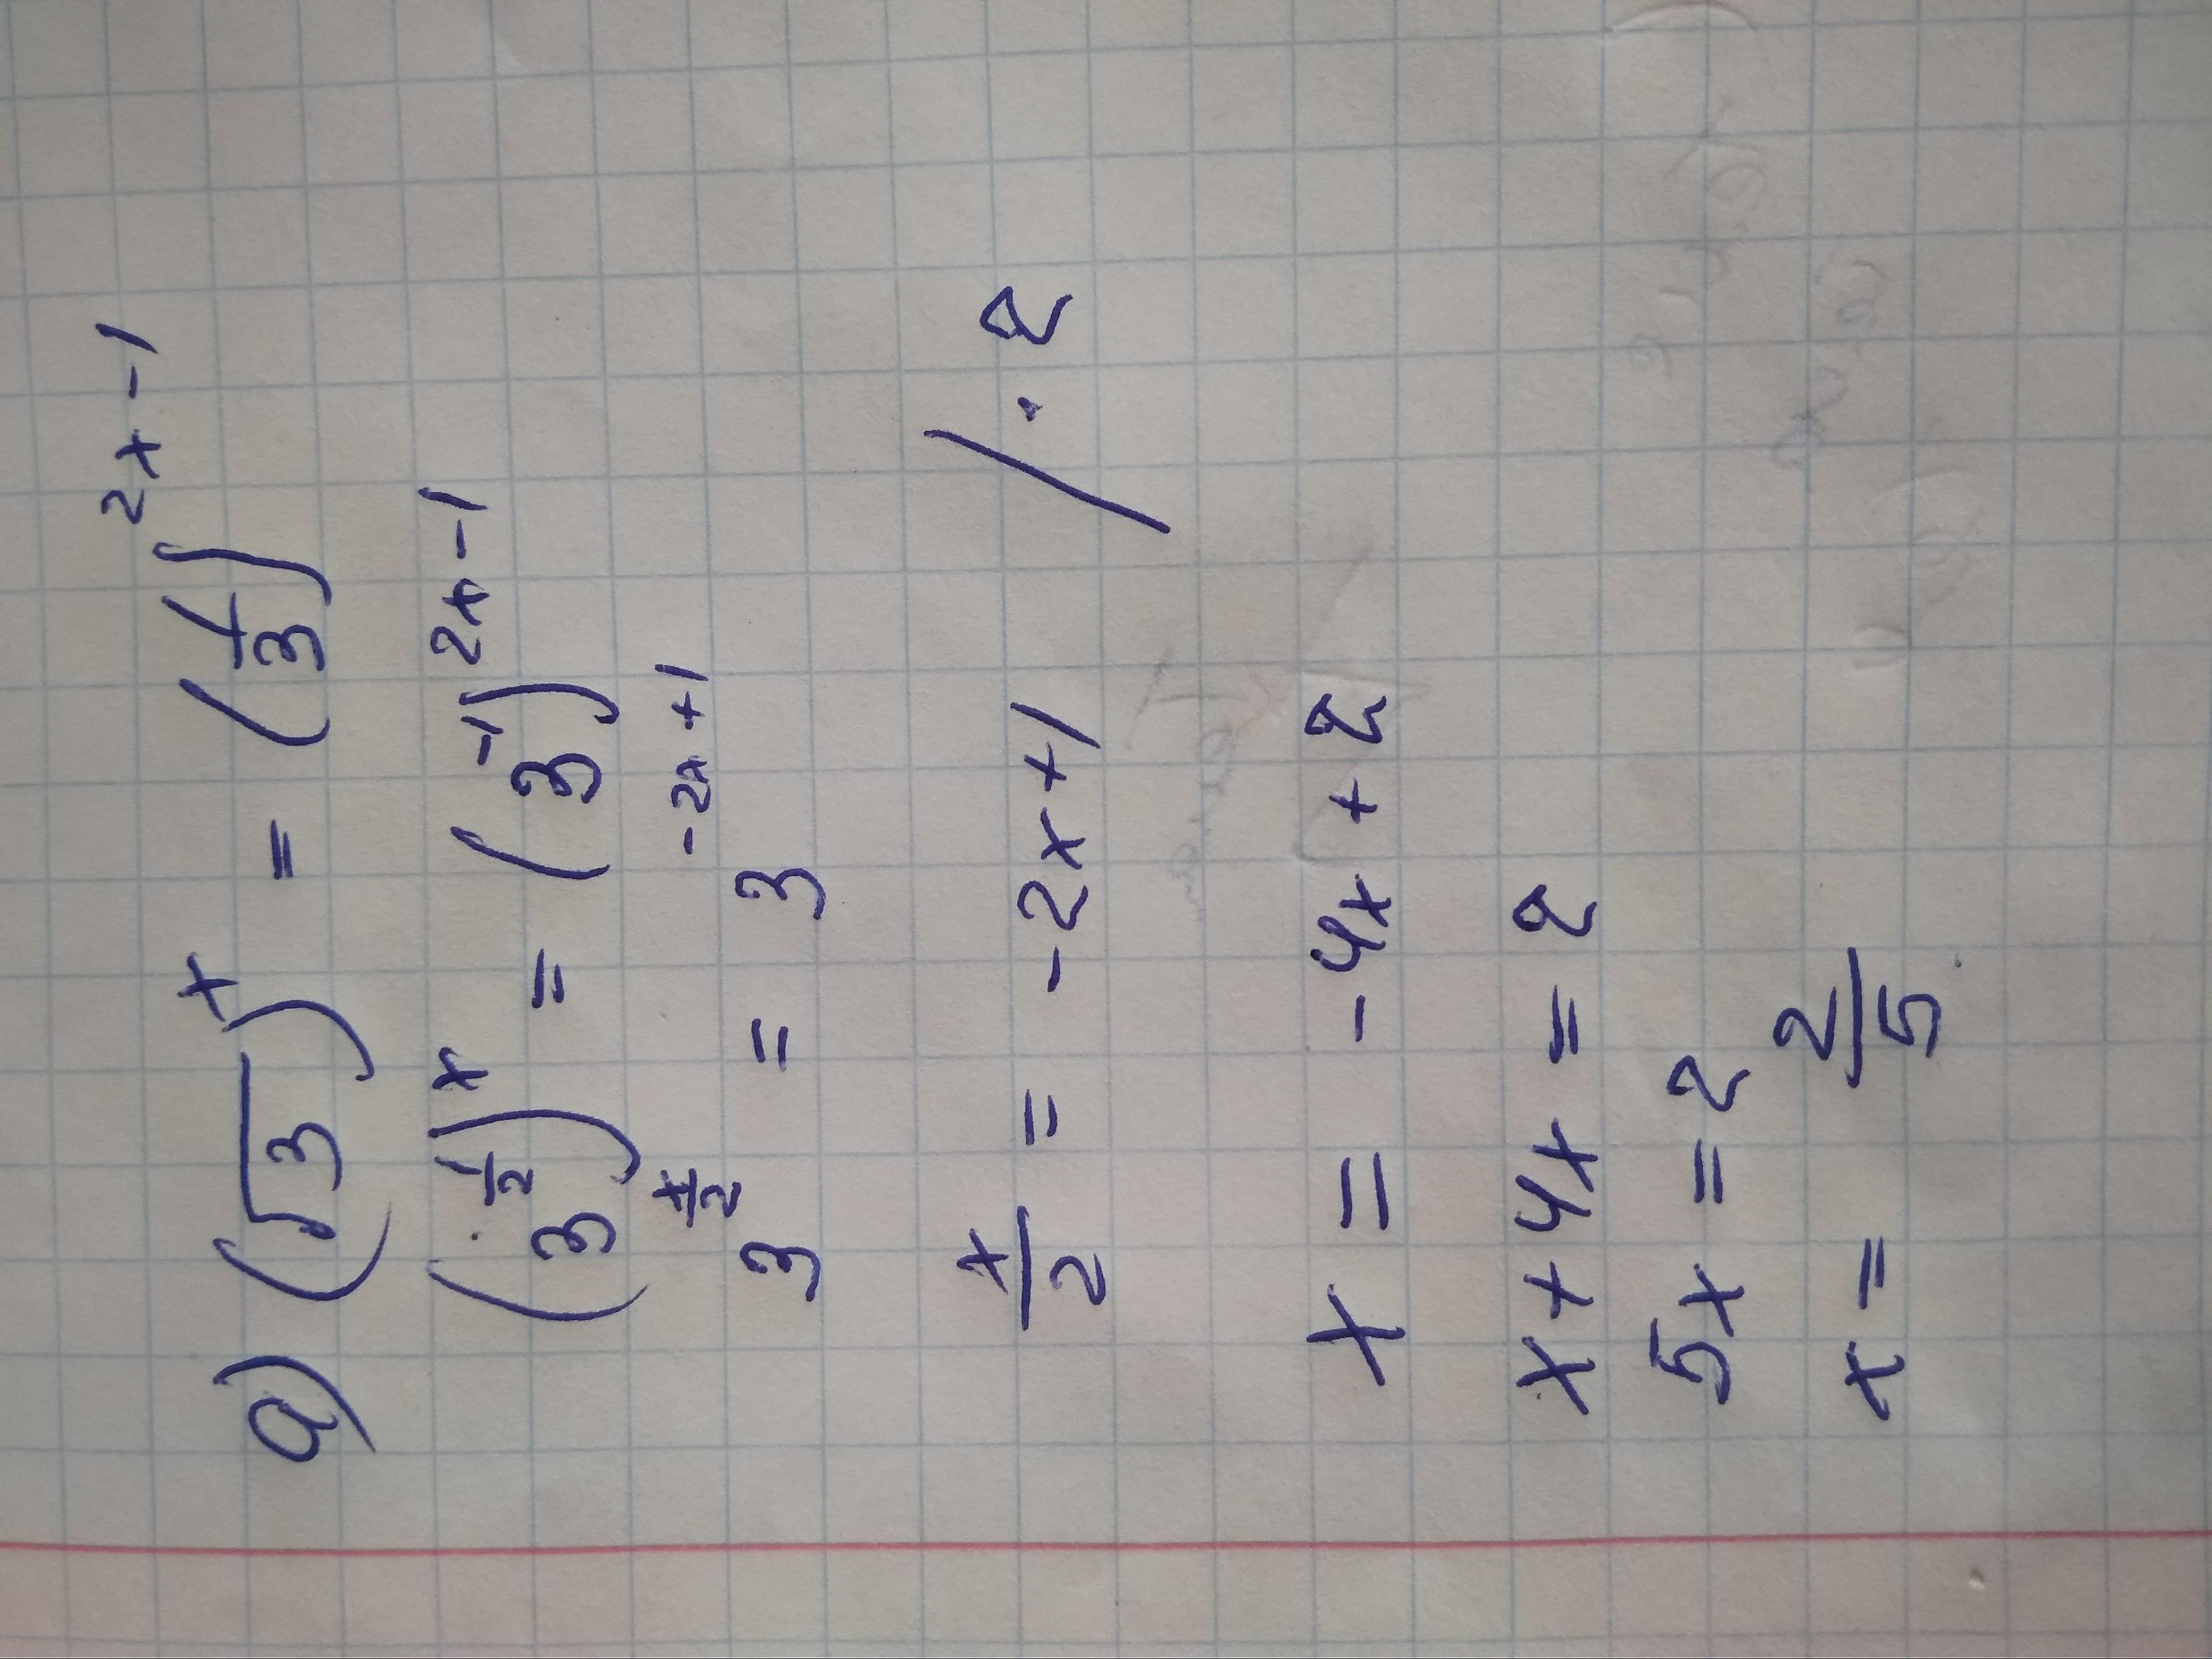 a) (√3)^x = (1/3)^(2x-1)
(3^(1/2))^x = (3^(-1))^(2x-1)
3^(x/2) = 3^(-2x+1)
x/2 = -2x+1 / · 2
x = -4x + 2
x + 4x = 2
5x = 2
x = 2/5